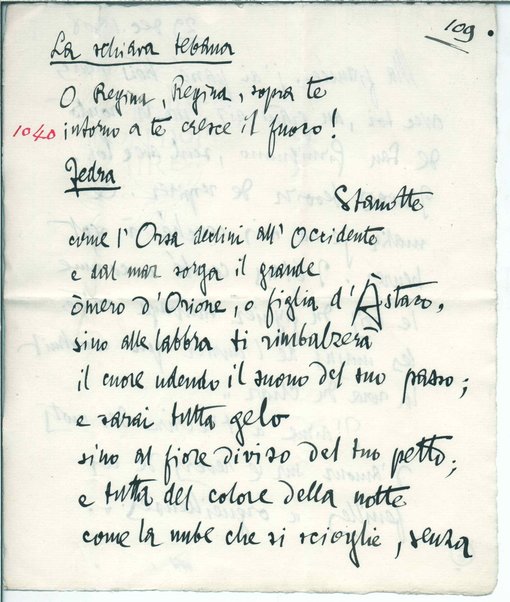 109.
La schiava tebana
O Regina, Regina, sopra te
1040 intorno a te cresce il fuoco!
Fedra
Stanotte
come l'Orsa declini all'Occidente
e dal mar sorga il grande
òmero d'Orione, o figlia d'Àstaco,
sino alle labbra ti rimbalzerà
il cuore udendo il suono del suo passo;
e sarai tutta gelo
sino al fiore diviso del tuo petto;
e tutta del colore della notte
come la nube che si scioglie, senza